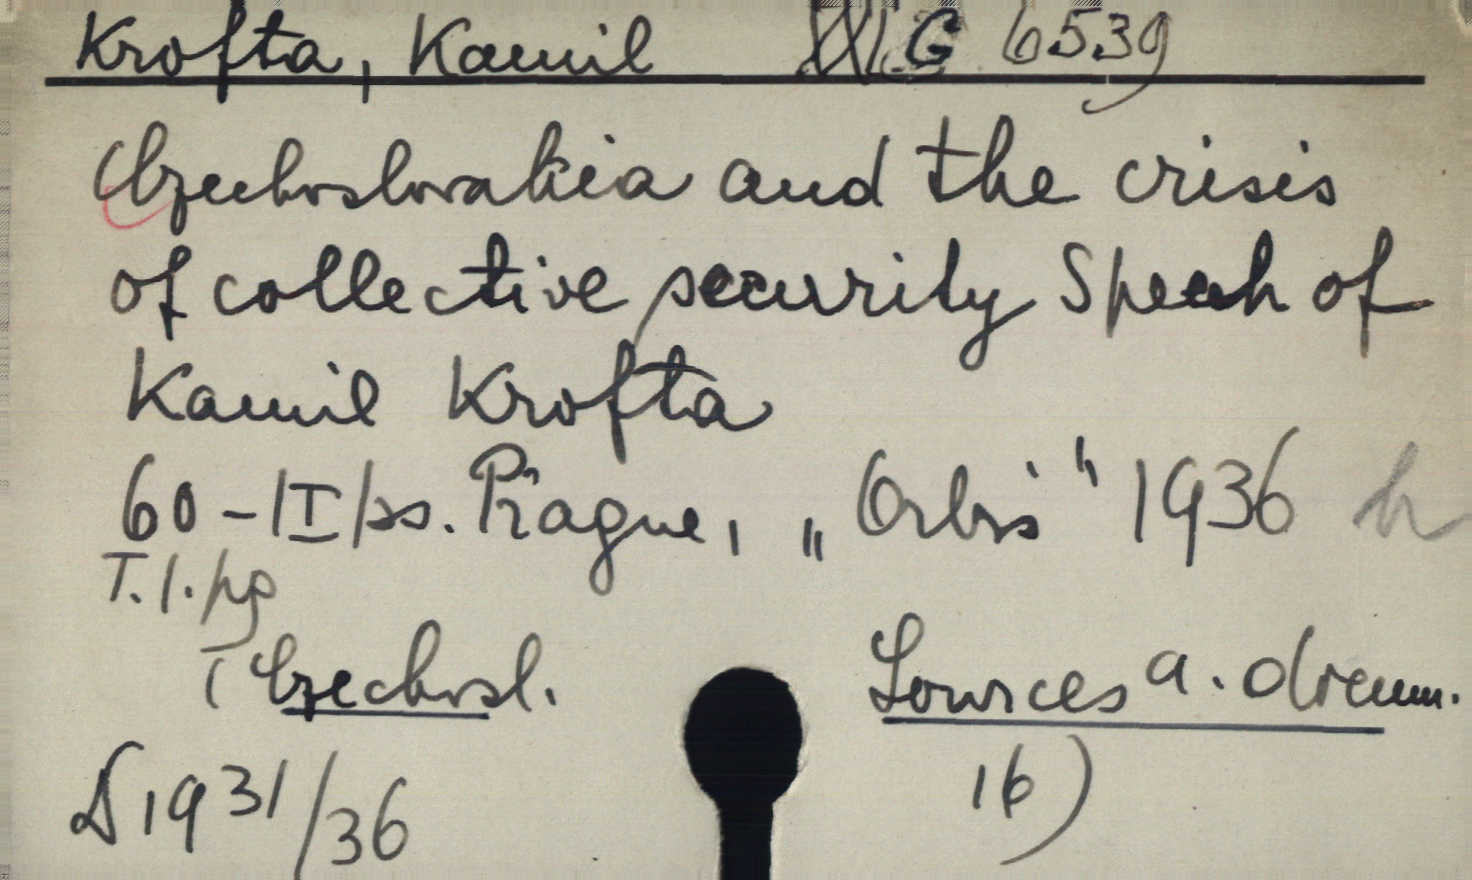 Krofta, Kamil G 6539
Czechoslovakia and the crisis
of collective security Speech of
Kamil Krofta
60-II/ss. Prague, „Orbis" 1936
T.1./pg
Czechosl. Sources a. docum.
1931/36 16)